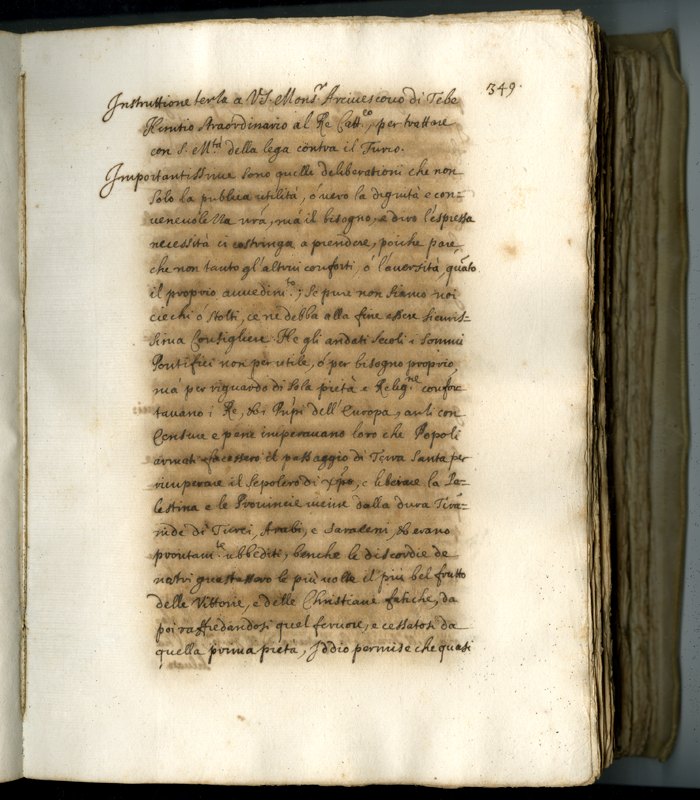 349.
Instruttione terza a V.S. Mons.r Arcivescovo di Tebe
Nuntio straordinario al Re Catt.co, per trattare
con S. M.tà della lega contra il Turco.
Importantissime sono quelle deliberationi che non
solo la publica utilità, ó uero la dignità e con=
ueneuolezza ura, má il bisogno, e diro l'espressa
necessità ci costringa a prendere, poiche pare,
che non tanto gl'altrui conforti, ó l'auersità, quãto
il proprio auuedim.to; se pure non siamo noi
ciechi ó stolti, ce ne debba alla fine essere sicuris=
sima Consigliere. Ne gli andati secoli i Sommi
Pontifici non per utile, ó per bisogno proprio,
má per riguardo di sola pietà e Relig.ne confor
tauano i Re, et i Pñpi dell'Europa, anzi con
Censure e pene imperauano loro che Popoli
armati facessero il passaggio di Terra Santa per
ricuperare il Sepolcro di Xpo, e liberare la Pa=
lestina e le Prouincie uicine dalla dura Tira=
nide di Turci, Arabi, e Saraceni, et erano
prontam.te ubbediti, benche le discordie de
nostri guastassero le più uolte il più bel frutto
delle Vittorie, e delle Christiane fatiche, da
poi raffredandosi quel feruore, e cessatosi da
quella prima pietà, Iddio permise che quasi